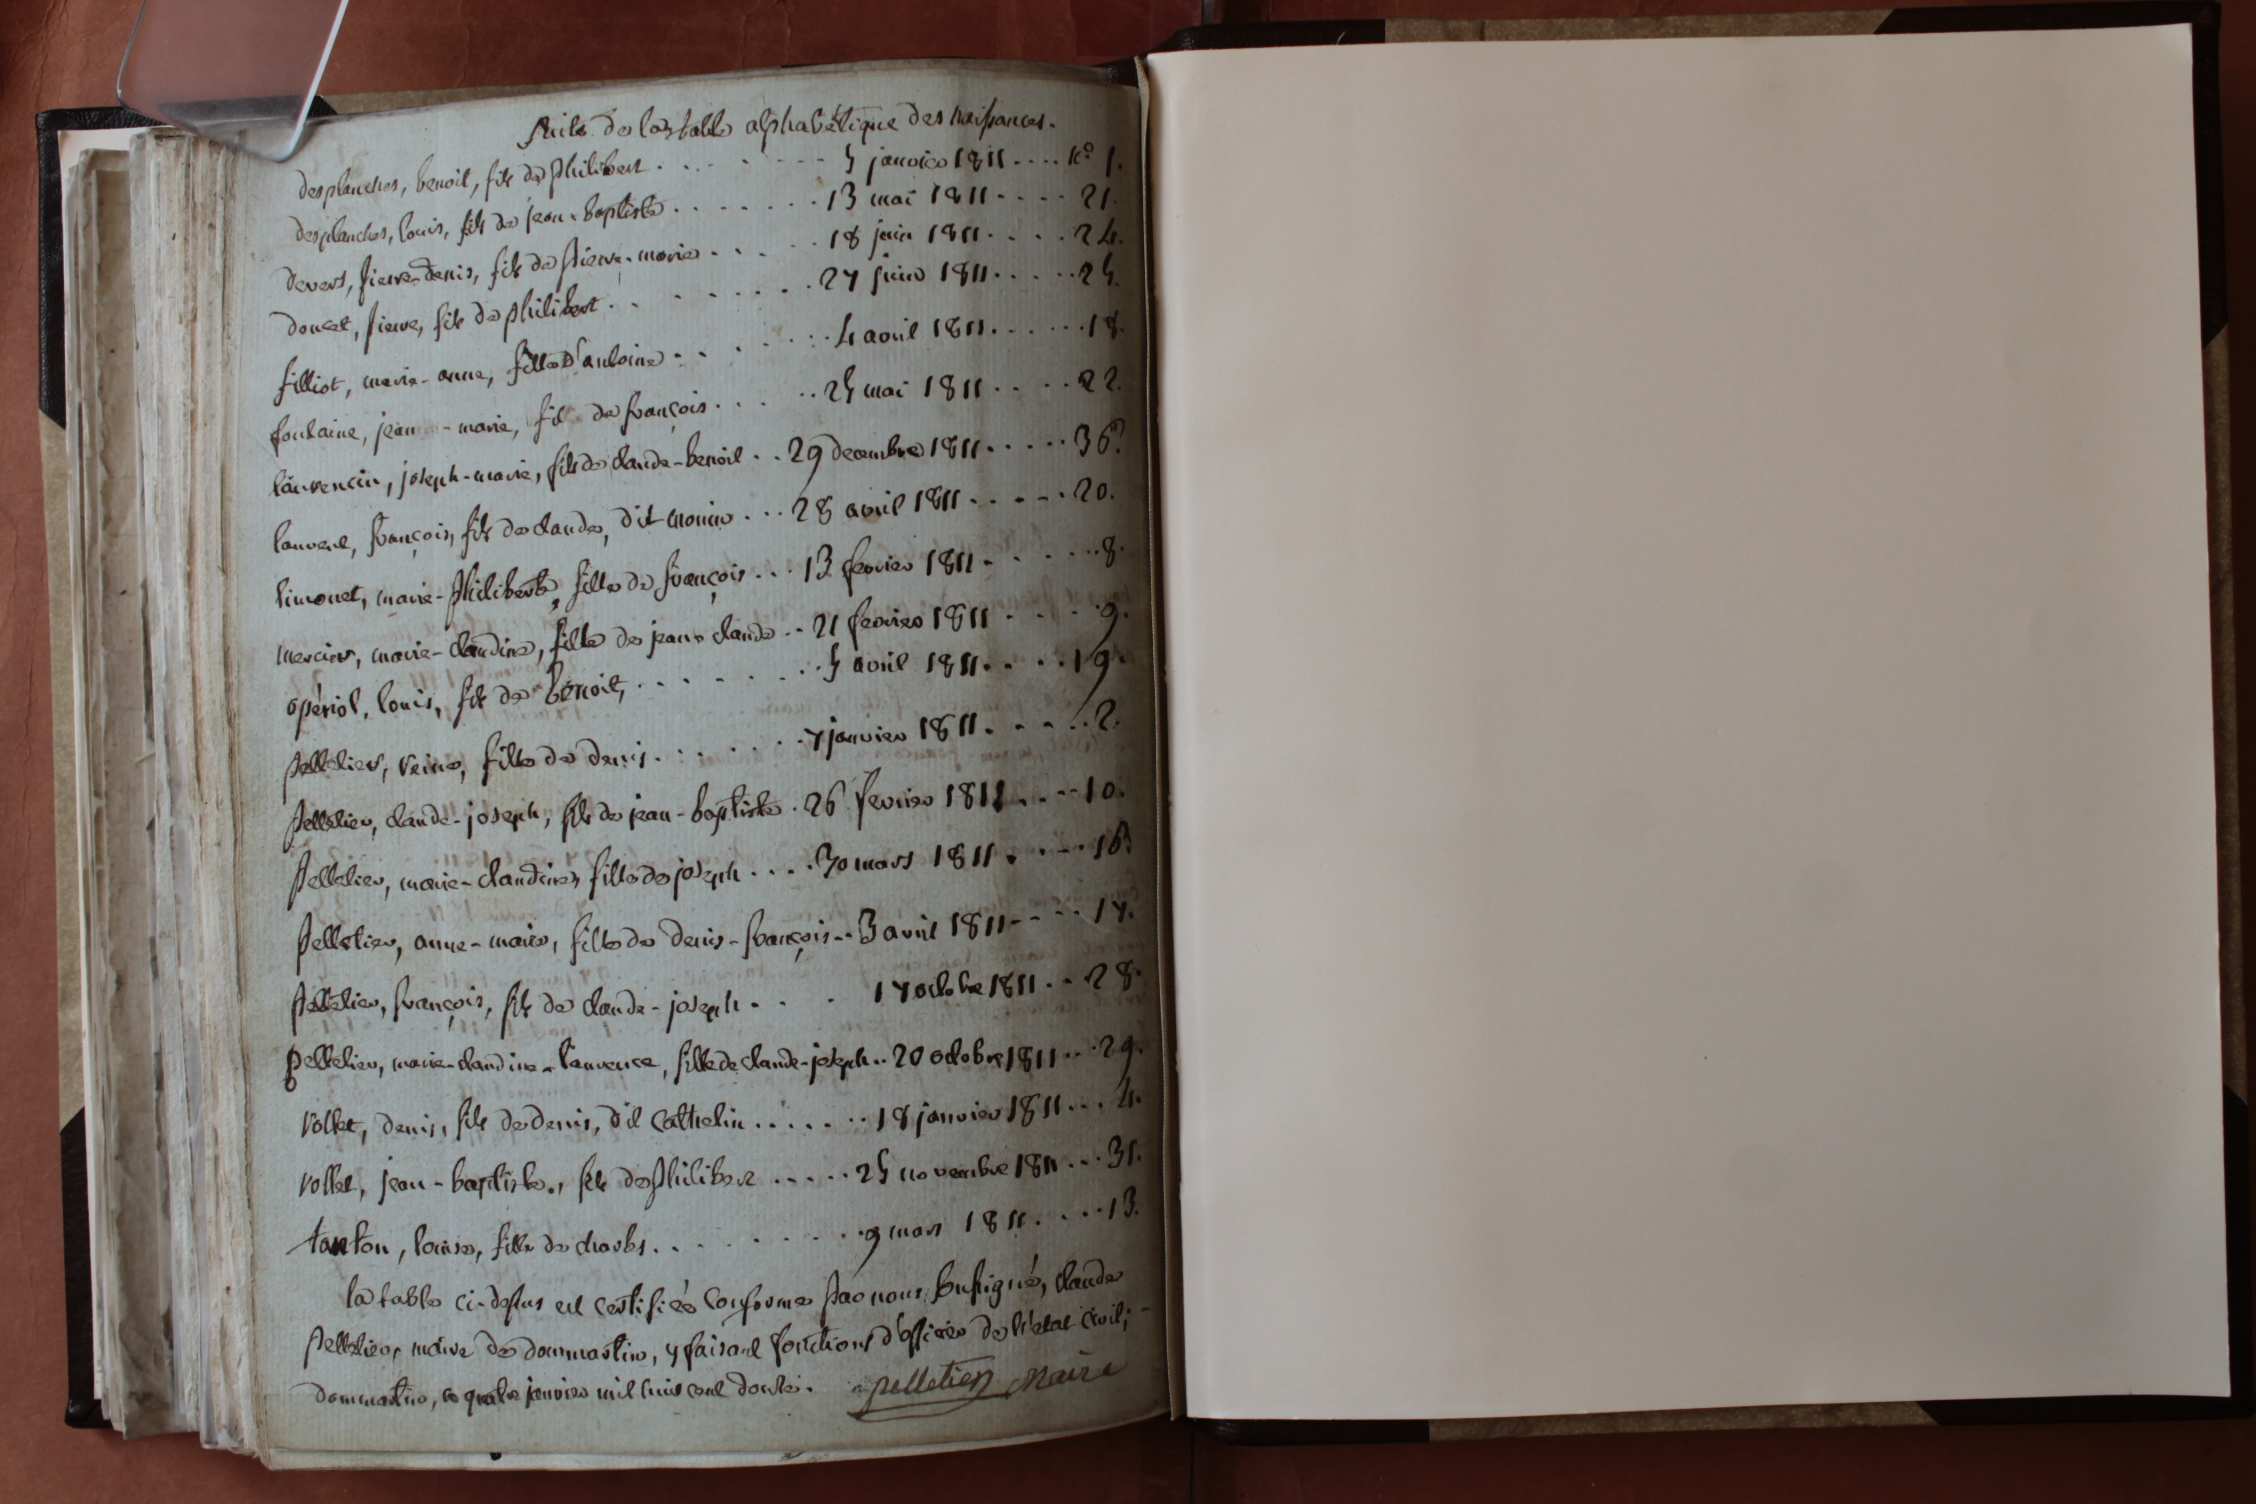 suite de la table alphabétique des naissances.
desplanches, benoit, fils de philibert . . . . . . . 5 janvier 1811 . . . . no 1.
desplanches, louis, fils de jean-baptiste . . . . . . . 13 mai 1811 . . . . 21.
devers, pierre-denis, fils de pierre-marie . . . . . 18 juin 1811 . . . . 24.
doucet, pierre, fils de philibert . . . . . . . . 27 juin 1811 . . . . . 25.
filliot, marie-anne, fille d'antoine . . . . . . . . 4 avril 1811 . . . . . . 18.
fontaine, jean-marie, fils de françois . . . . . 25 mai 1811 . . . . 22.
laurencin, joseph-marie, fils de claude-benoit . . 29 decembre 1811 . . . . . 36.
laurent, françois, fils de claude, dit monin . . . 28 avril 1811 . . . . . 20.
limonet, marie-philiberte, fille de françois . . . 13 fevrier 1811 . . . . . . 8.
mercier, marie-claudine, fille de jean-claude . . 21 fevrier 1811 . . . . . 9.
opériol, louis, fils de benoit, . . . . . . . . 5 avril 1811 . . . . . 19.
pelletier, reine, fille de denis . . . . . . . . 7 janvier 1811 . . . . . 2.
pelletier, claude-joseph, fils de jean-baptiste . 26 fevrier 1811 . . . . 10.
pelletier, marie-claudine, fille de joseph . . . . 30 mars 1811 . . . . 16.
pelletier, anne-marie, fille de denis-françois . . 3 avril 1811 . . . . 17.
pelletier, françois, fils de claude-joseph . . . . 17 octobre 1811 . . . 28.
pelletier, marie-claudine-laurence, fille de claude-joseph . . 20 octobre 1811 . . . 29.
vollet, denis, fils de denis, dit cathelin . . . . . . . 18 janvier 1811 . . . 4.
vollet, jean-baptiste, fils de philibert . . . . . 25 novembre 1811 . . . 31.
tanton, louise, fille de charles . . . . . . . . . 9 mars 1811 . . . . 13.
la table ci-dessus est certifiée conforme par nous soussigné, claude
pelletier, maire de dommartin, y faisant fonctions d'officier de l'état civil;
dommartin, ce quatre janvier mil huit cent douze. pelletier Maire